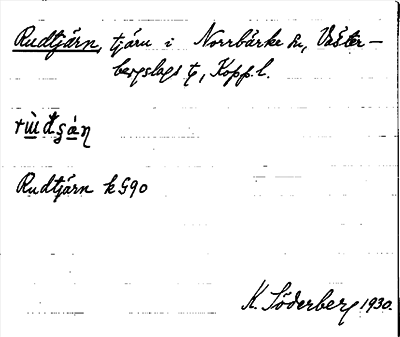 Rudtjärn, tjärn i Norrbärke sn, Väster-
bergslags tg, Kopp.l.
Rudtjärn k 590
K. Söderberg 1930.